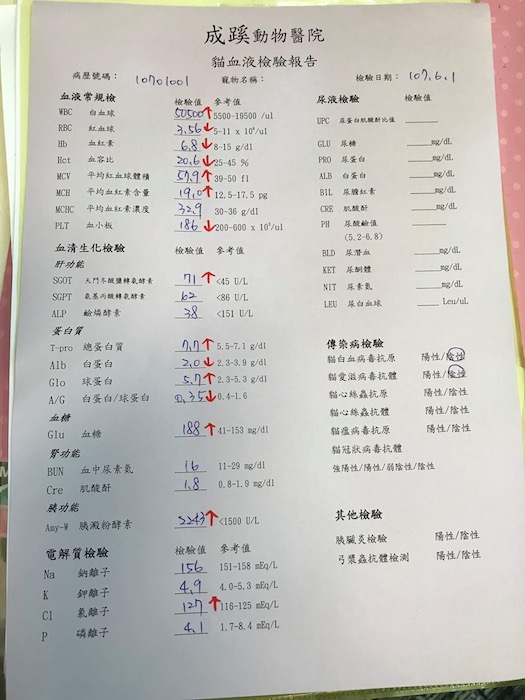 成蹊動物醫院
貓血液檢驗報告
病歷號碼： 10701001 寵物名稱： 檢驗日期： 107.6.1
血液常規檢 檢驗值 參考值
WBC 白血球 50500↑ 5500-19500 /ul
RBC 紅血球 3.56↓ 5-11 x 10⁶/ul
Hb 血紅素 6.8↓ 8-15 g/dl
Hct 血容比 20.6↓ 25-45 %
MCV 平均紅血球體積 57.9↑ 39-50 fl
MCH 平均紅血素含量 19.0↑ 12.5-17.5 pg
MCHC 平均血紅素濃度 32.9 30-36 g/dl
PLT 血小板 186↓ 200-600 x 10³/ul
血清生化檢驗 檢驗值 參考值
肝功能
SGOT 天門冬酸鹽轉氨酵素 71↑ <45 U/L
SGPT 氨基丙酸鹽轉氨酵素 62 <86 U/L
ALP 鹼燐酵素 38 <151 U/L
蛋白質
T-pro 總蛋白質 7.7↑ 5.5-7.1 g/dl
Alb 白蛋白 2.0↓ 2.3-3.9 g/dl
Glo 球蛋白 5.7↑ 2.3-5.3 g/dl
A/G 白蛋白/球蛋白 0.35↓ 0.4-1.6
血糖
Glu 血糖 188↑ 41-153 mg/dl
腎功能
BUN 血中尿素氮 16 11-29 mg/dl
Cre 肌酸酐 1.8 0.8-1.9 mg/dl
胰功能
Amy-W 胰澱粉酵素 2243↑ <1500 U/L
電解質檢驗 檢驗值 參考值
Na 鈉離子 156 151-158 mEq/L
K 鉀離子 4.9 4.0-5.3 mEq/L
Cl 氯離子 127↑ 116-125 mEq/L
P 磷離子 4.1 1.7-8.4 mEq/L
尿液檢驗 檢驗值
UPC 尿蛋白肌酸酐比值
GLU 尿糖 mg/dL
PRO 尿蛋白 mg/dL
ALB 白蛋白 mg/dL
BIL 尿膽紅素 mg/dL
CRE 肌酸酐 mg/dL
PH 尿酸鹼值
(5.2-6.8)
BLD 尿潛血 mg/dL
KET 尿酮體 mg/dL
NIT 尿素氮 mg/dL
LEU 尿白血球 Leu/uL
傳染病檢驗
貓白血病毒抗原 陽性/陰性
貓愛滋病毒抗體 陽性/陰性
貓心絲蟲抗原 陽性/陰性
貓心絲蟲抗體 陽性/陰性
貓瘟病毒抗原 陽性/陰性
貓冠狀病毒抗體
強陽性/陽性/弱陰性/陰性
其他檢驗
胰臟炎檢驗 陽性/陰性
弓漿蟲抗體檢測 陽性/陰性